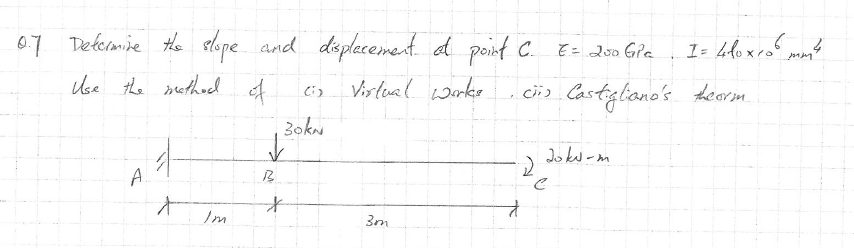 Q.7 Determine the slope and displacement at point C. E = 200 GPa, I = 410 x 10^6 mm^4
Use the method of (i) Virtual Works. (ii) Castigliano's theorm
30kN
20kN-m
A B C
1m 3m